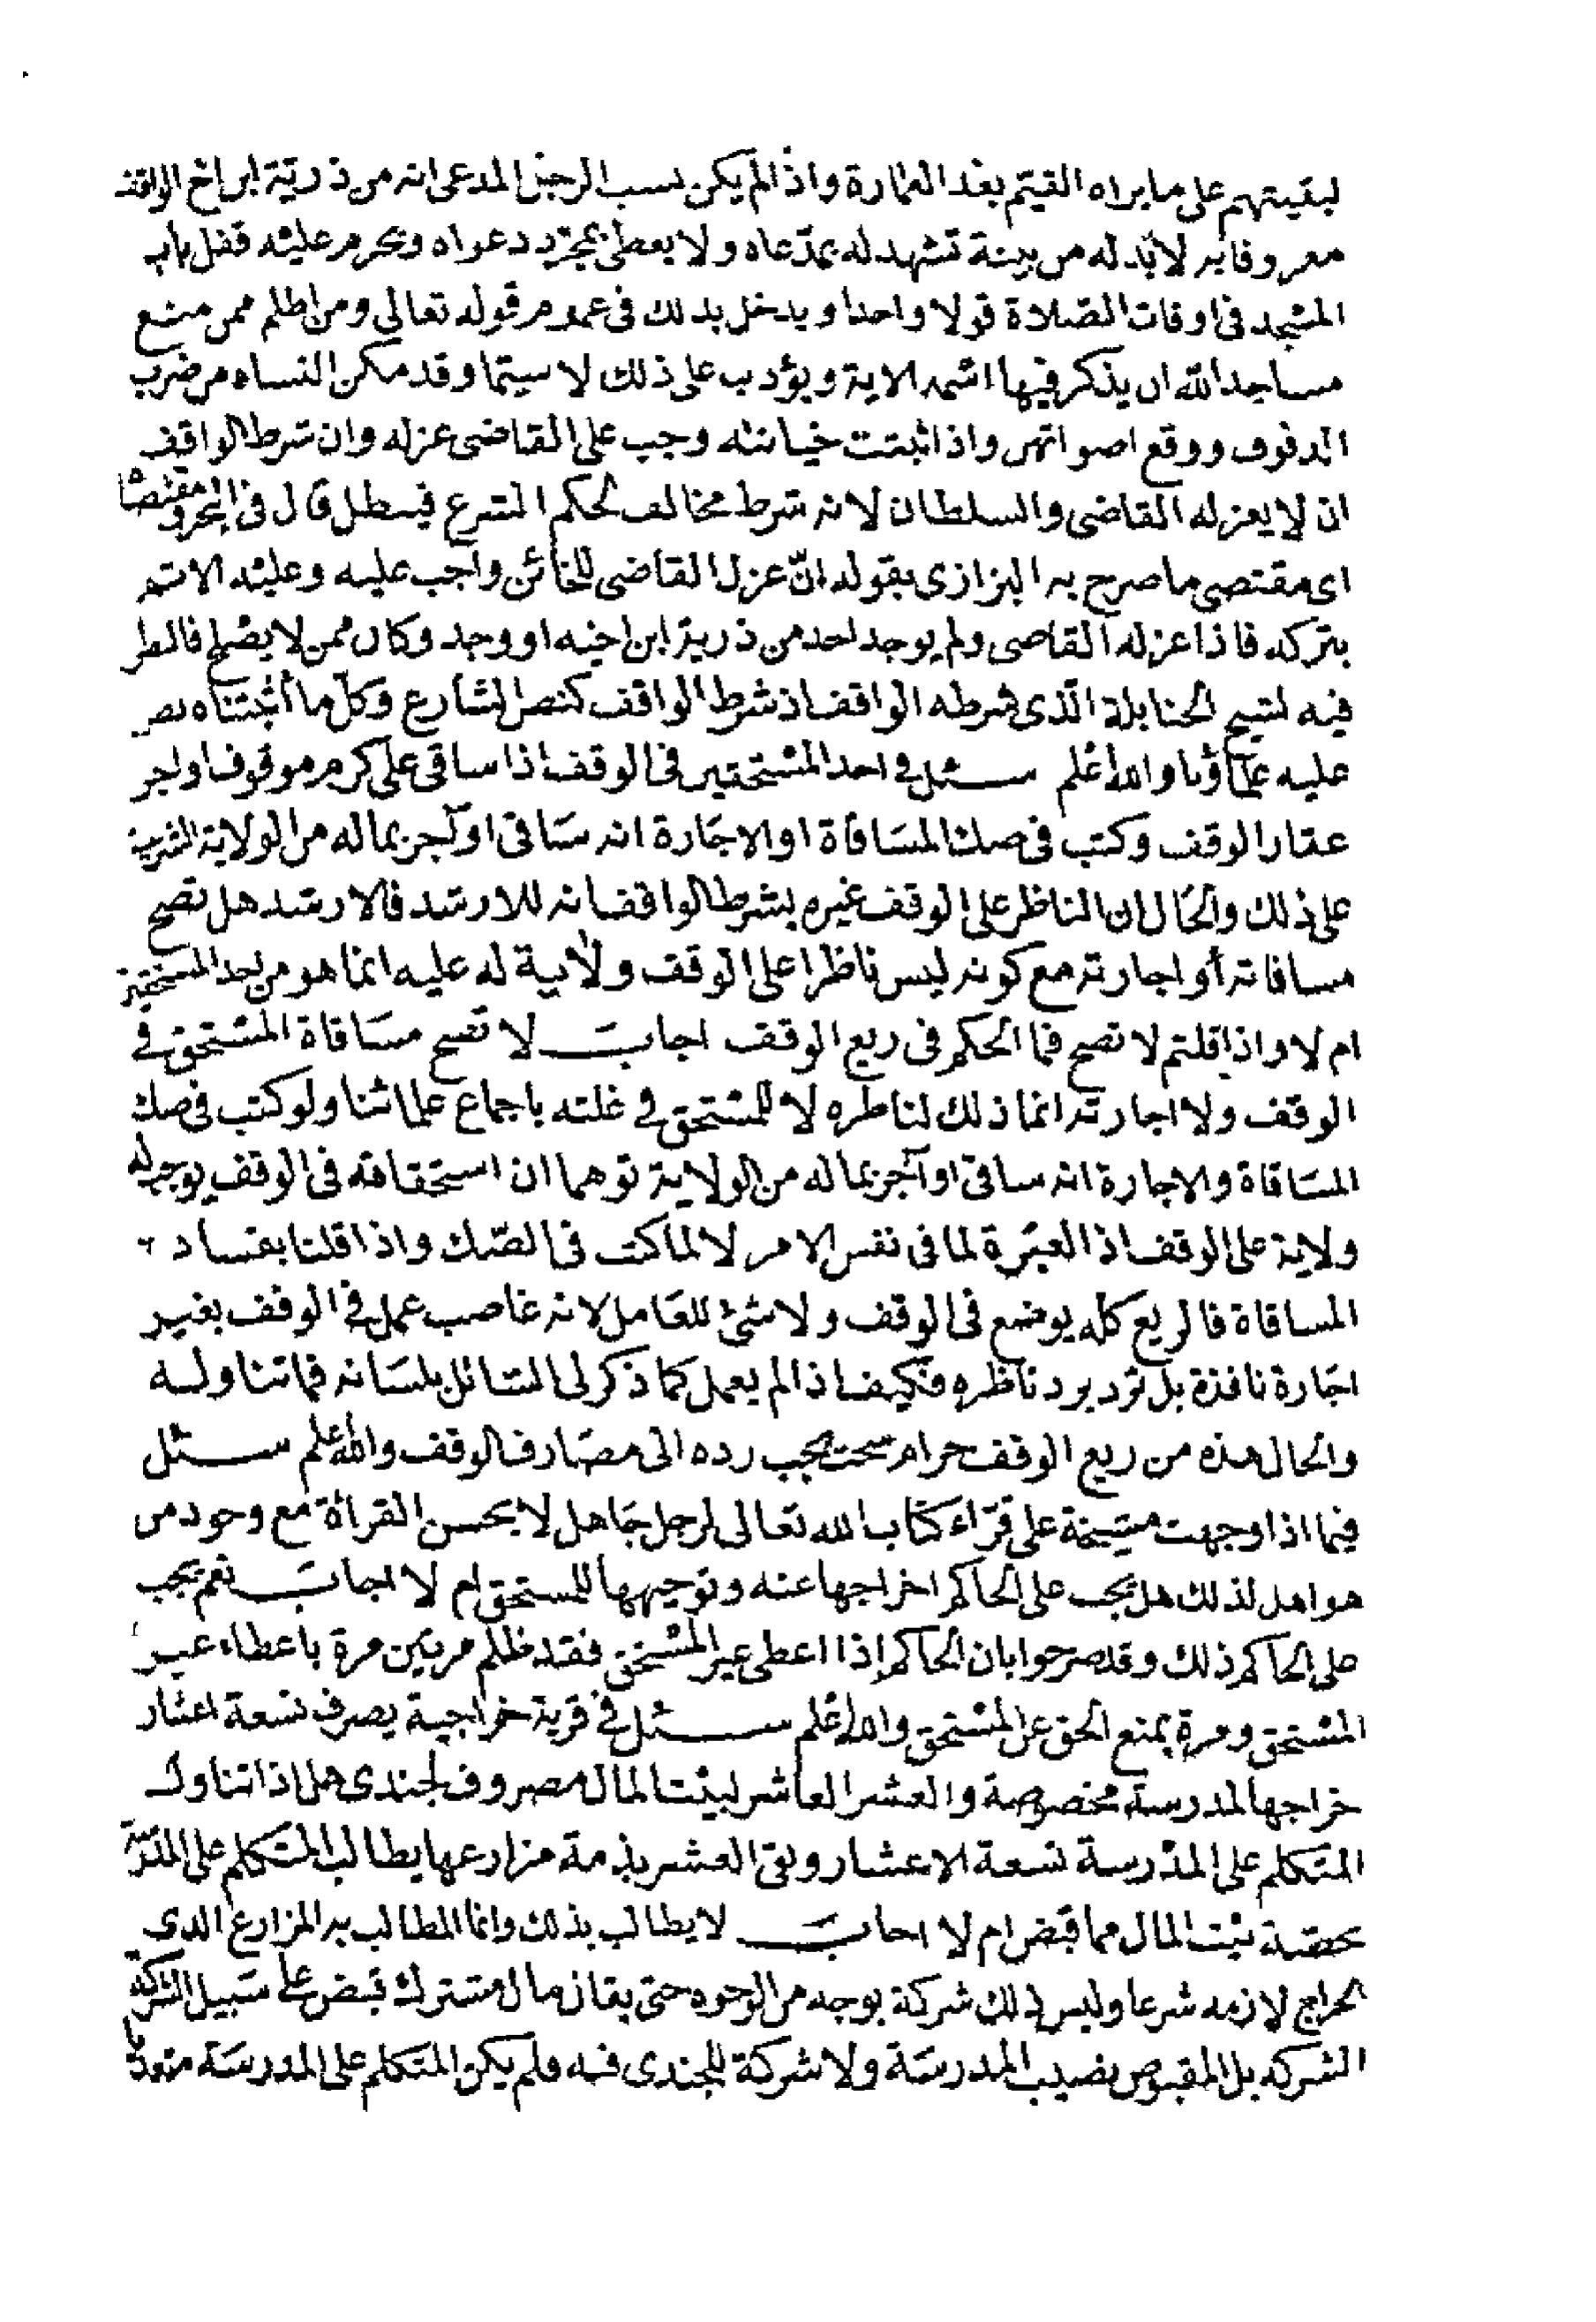 لبقيتهم على ما يراه القيتم بعد العمارة واذا لم يكن نسب الرجل المدعى انه من ذريّة ابن اخ الواقف
معروفا به لا بُد له من بينة تشهد له بمدّعاه ولا يعطى بمجرّد دعواه ويحرم عليْه قفل باب
المسْجد فى اوقات الصّلاة قولا واحدا ويدخل بذلك فى عموم قوله تعالى ومن اظلم ممن منع
مساجد الله ان يذكر فيها اسْمه الاية ويؤدب على ذلك لا سيّما وقد مكن النساء من ضرب
الدفوف ووقع اصواتهن واذا ثبتت خيانته وجب على القاضى عزله وان شرط الواقف
ان لا يعزله القاضى والسلطان لانه شرط مخالف لحكم الشرع فيبطل قال فى البحر ومقتضا
اى مقتضى ما صرح به البزازى بقوله انّ عزل القاضى للخائن واجب عليه وعليْه الاثم
بتركه فاذا عزله القاضى ولم يوجد احد من ذرية ابن اخيه او وجد وكان ممن لا يصْلح فالنظر
فيه لشيخ الحنابلة الّذى شرطه الواقف اذ شرط الواقف كنص الشارع وكلّ ما أثبتناه نص
عليه علماؤنا والله اعْلم سئل فى احد المسْتحقين فى الوقف اذا ساقى على كرم موقوف او اجر
عقار الوقف وكتب فى صك المسَاقاة او الاجَارة انه سَاقى او آجر بماله من الولاية الشرعية
على ذلك والحَال ان الناظر على الوقف غيره بشرط الواقف انه للارشد فالارشد هل تصح
مساقاته أو اجارته مع كونه ليس ناظرا على الوقف ولا ية له عليه انما هو من احد المستحقين
ام لا واذا قلتم لا تصح فما الحكم فى ريع الوقف اجابَ لا تصح مسَاقاة المسْتحق فى
الوقف ولا اجارته انما ذلك لناظره لا للمسْتحق فى غلته باجماع علمائنا ولو كتب فى صك
المسَاقاة والاجارة انه ساقى او آجر بماله من الولاية توهما ان استحقاقه فى الوقف يوجب له
ولاية على الوقف اذ العبْرة لما فى نفس الامر لا لما كتب فى الصّك واذا قلنا بفساد
المساقاة فالريع كله يوضع فى الوقف ولا شئ للعَامل لانه غاصب عمل فى الوقف بغير
اجَارة نافذة بل تُرد برد ناظره فكيف اذا لم يعمل كما ذكر لى السَائل بلسَانه فما تناوله
والحال هذه من ريع الوقف حرام سحت يجب رده الى مصَارف الوقف والله اعلم سئل
فيما اذا وجهت مشيخة على قرّاء كتاب الله تعالى لرجل جَاهل لا يحسن القراأة مع وجود من
هو اهل لذلك هل يجب على الحاكم اخراجها عنه وتوجيهها للمستحق ام لا اجابَ نعم يجب
على الحاكم ذلك وقد صرحوا بان الحاكم إذا اعطى غير المسْتحق فقد ظلم مرتين مرة باعطاء غير
المسْتحق ومرة بمنع الحق عن المسْتحق والله اعْلم سئل فى قرية خراجية يصرف تسعة اعشار
خراجها لمدرسة مخصوصة والعشر العاشر لبيْت المال مصروف لجندى هل اذا تناول
المتكلم على المدْرسة تسعة الاعشار وبقى العشر بذمة مزارعها يطالب المتكلم على المدرسَة
بحصّة بيْت المال مما قبَض ام لا اجابَ لا يطالب بذلك وانما المطالب به المزارع الذى
الخراج لازمه شرعا وليس لذلك شركة بوجه من الوجوه حتى يقال مال مشترك قبض على سَبيل الشركة
الشركه بل المقبوض نصيب المدرسَة ولا شركة للجندى فيه ولم يكن المتكلم على المدرسَة متعديا